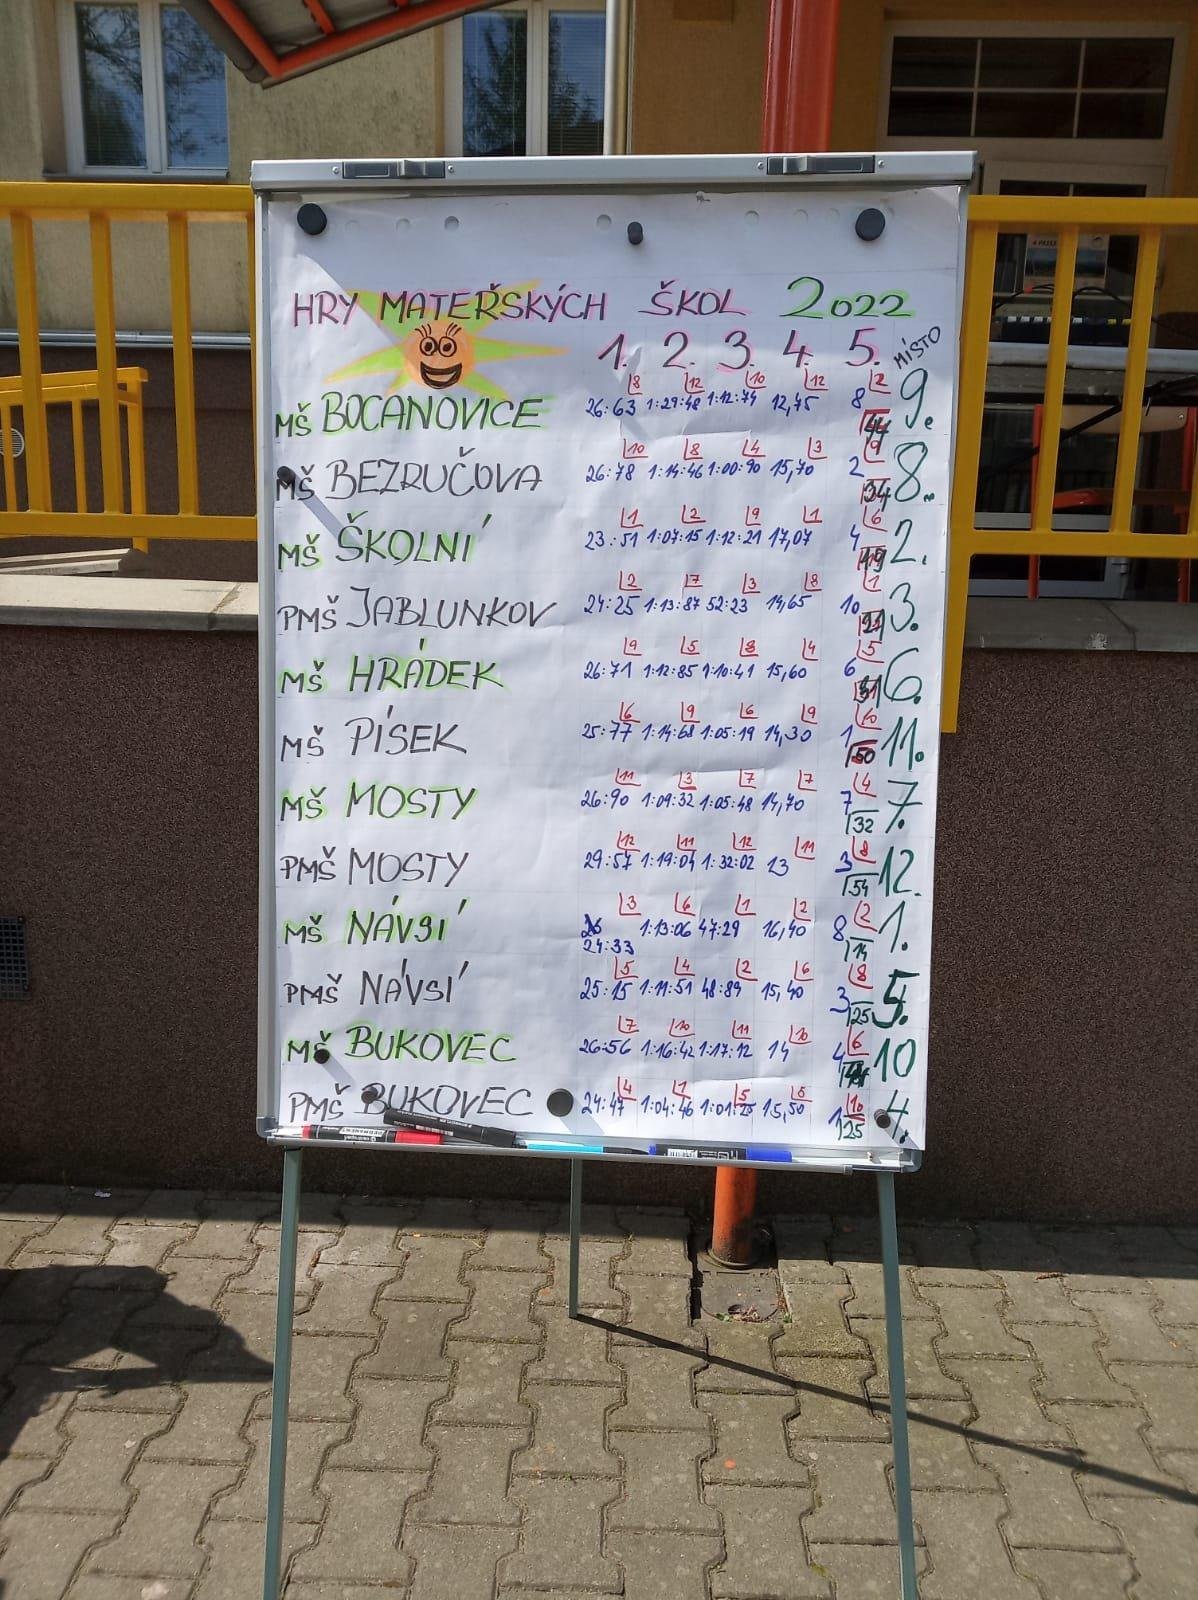 HRY MATEŘSKÝCH ŠKOL 2022
1. 2. 3. 4. 5. MÍSTO
MŠ BOCANOVICE 26:63 8 1:29:48 12 1:12:74 10 12,75 12 8 2 44 9.
MŠ BEZRUČOVA 26:78 10 1:14:46 8 1:00:90 4 15,70 3 2 9 34 8.
MŠ ŠKOLNÍ 23:51 1 1:07:15 2 1:12:21 9 17,07 1 4 6 19 2.
PMŠ JABLUNKOV 24:25 2 1:13:87 7 52:23 3 14,65 8 10 1 21 3.
MŠ HRÁDEK 26:71 9 1:12:85 5 1:10:41 8 15,60 4 6 5 31 6.
MŠ PÍSEK 25:77 6 1:14:68 9 1:05:19 6 14,30 9 1 10 50 11.
MŠ MOSTY 26:90 11 1:09:32 3 1:05:48 7 14,70 7 7 4 32 7.
PMŠ MOSTY 29:57 12 1:19:04 11 1:32:02 12 13 11 3 8 54 12.
MŠ NÁVSÍ 24:33 3 1:13:06 6 47:29 1 16,40 2 8 2 14 1.
PMŠ NÁVSÍ 25:15 5 1:11:51 4 48:89 2 15,40 6 3 8 25 5.
MŠ BUKOVEC 26:56 7 1:16:42 10 1:17:12 11 14 10 4 6 10
PMŠ BUKOVEC 24:47 4 1:04:46 1 1:01:25 5 15,50 5 1 10 25 4.